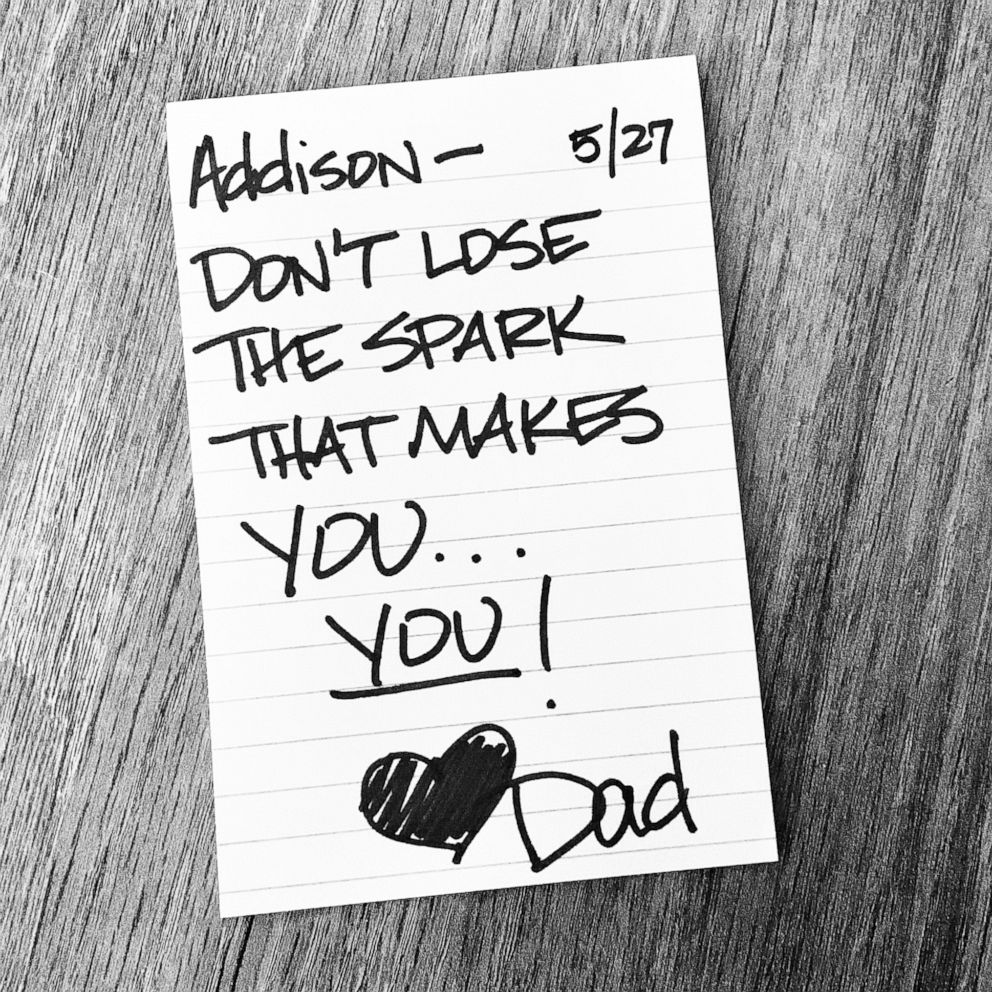 Addison – 5/27
DON'T LOSE
THE SPARK
THAT MAKES
YOU...
YOU!
Dad